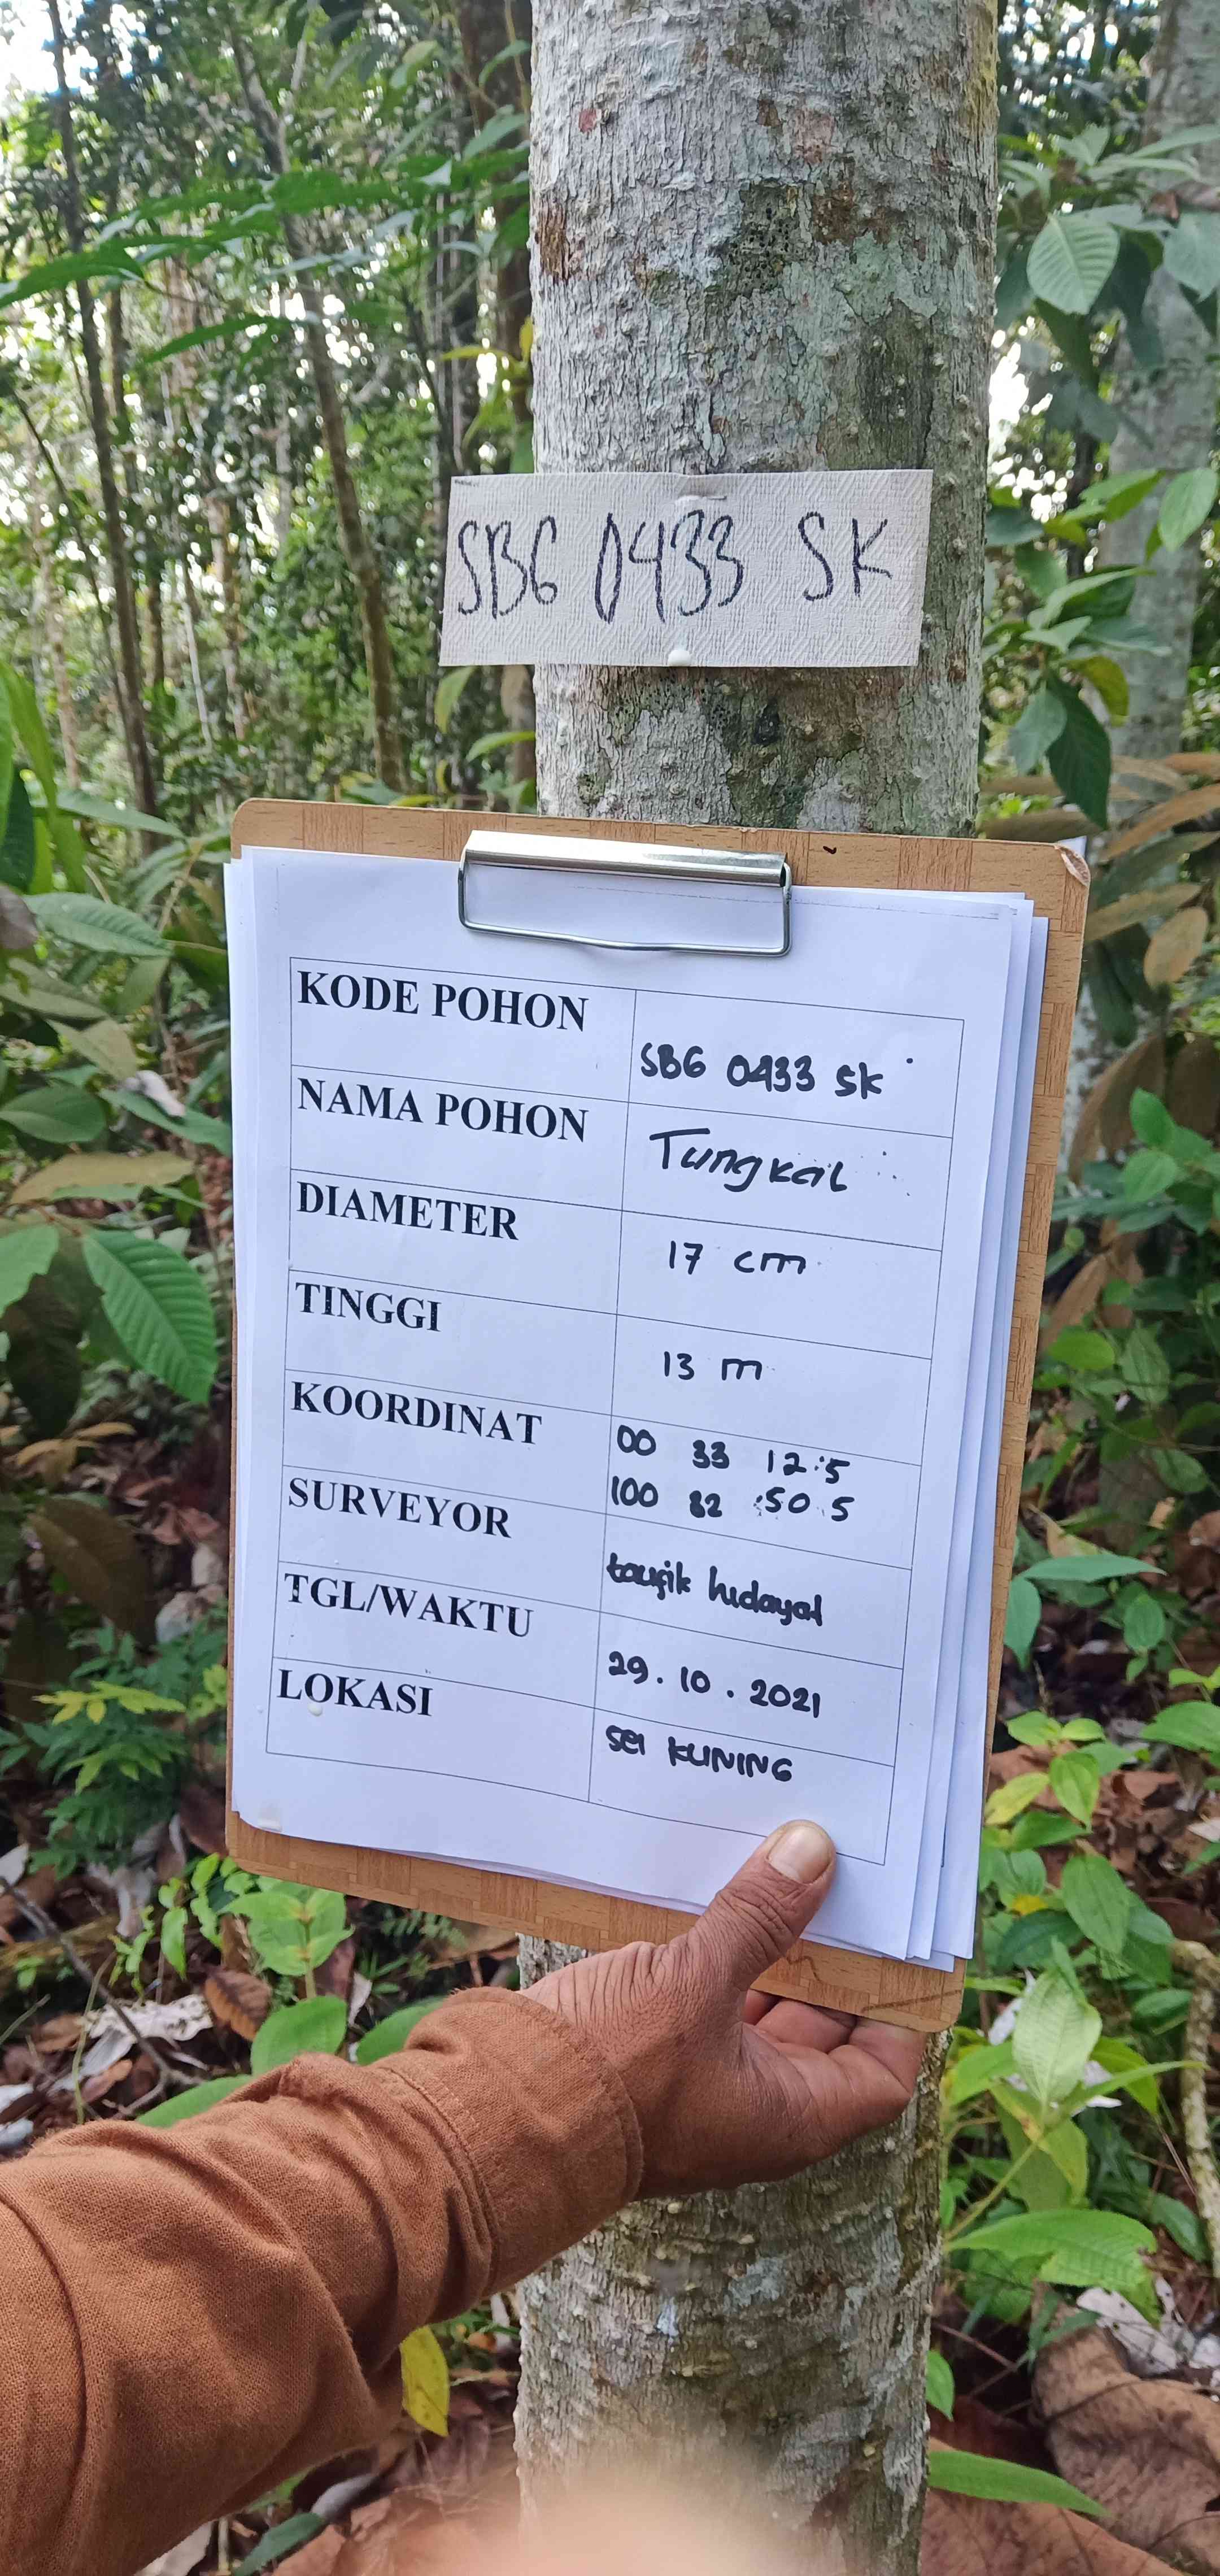 SBG 0433 SK
KODE POHON
SBG 0433 SK
NAMA POHON
Tungkal
DIAMETER
17 cm
TINGGI
13 m
KOORDINAT
00 33 12.5
100 82 50.5
SURVEYOR
taufik hidayat
TGL/WAKTU
29.10.2021
LOKASI
sei KUNING